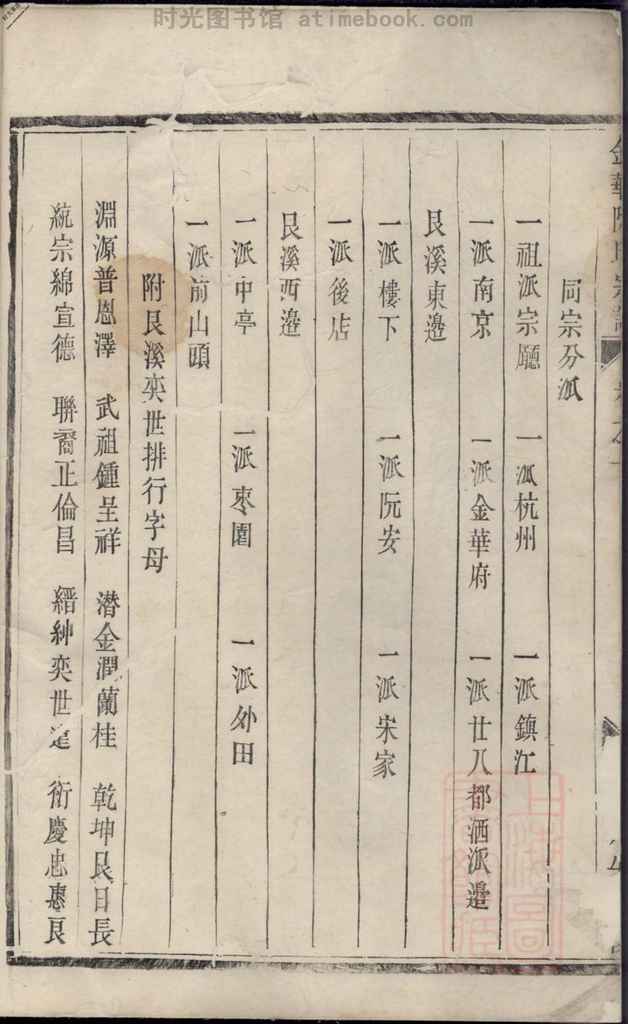 时光图书馆 atimebook.com
同宗分派
一祖派宗廳 一派杭州 一派鎮江
一派南京 一派金華府 一派廿八都洒派邉
艮溪東邉
一派樓下 一派阮安 一派宋家
一派後店
艮溪西邉
一派中亭 一派枣園 一派外田
一派前山頭
附艮溪奕世排行字母
淵源普恩澤 武祖鍾呈祥 潛金潤蘭桂 乾坤艮日長
統宗綿宣德 聯裔正倫昌 縉紳奕世定 衍慶忠惠良